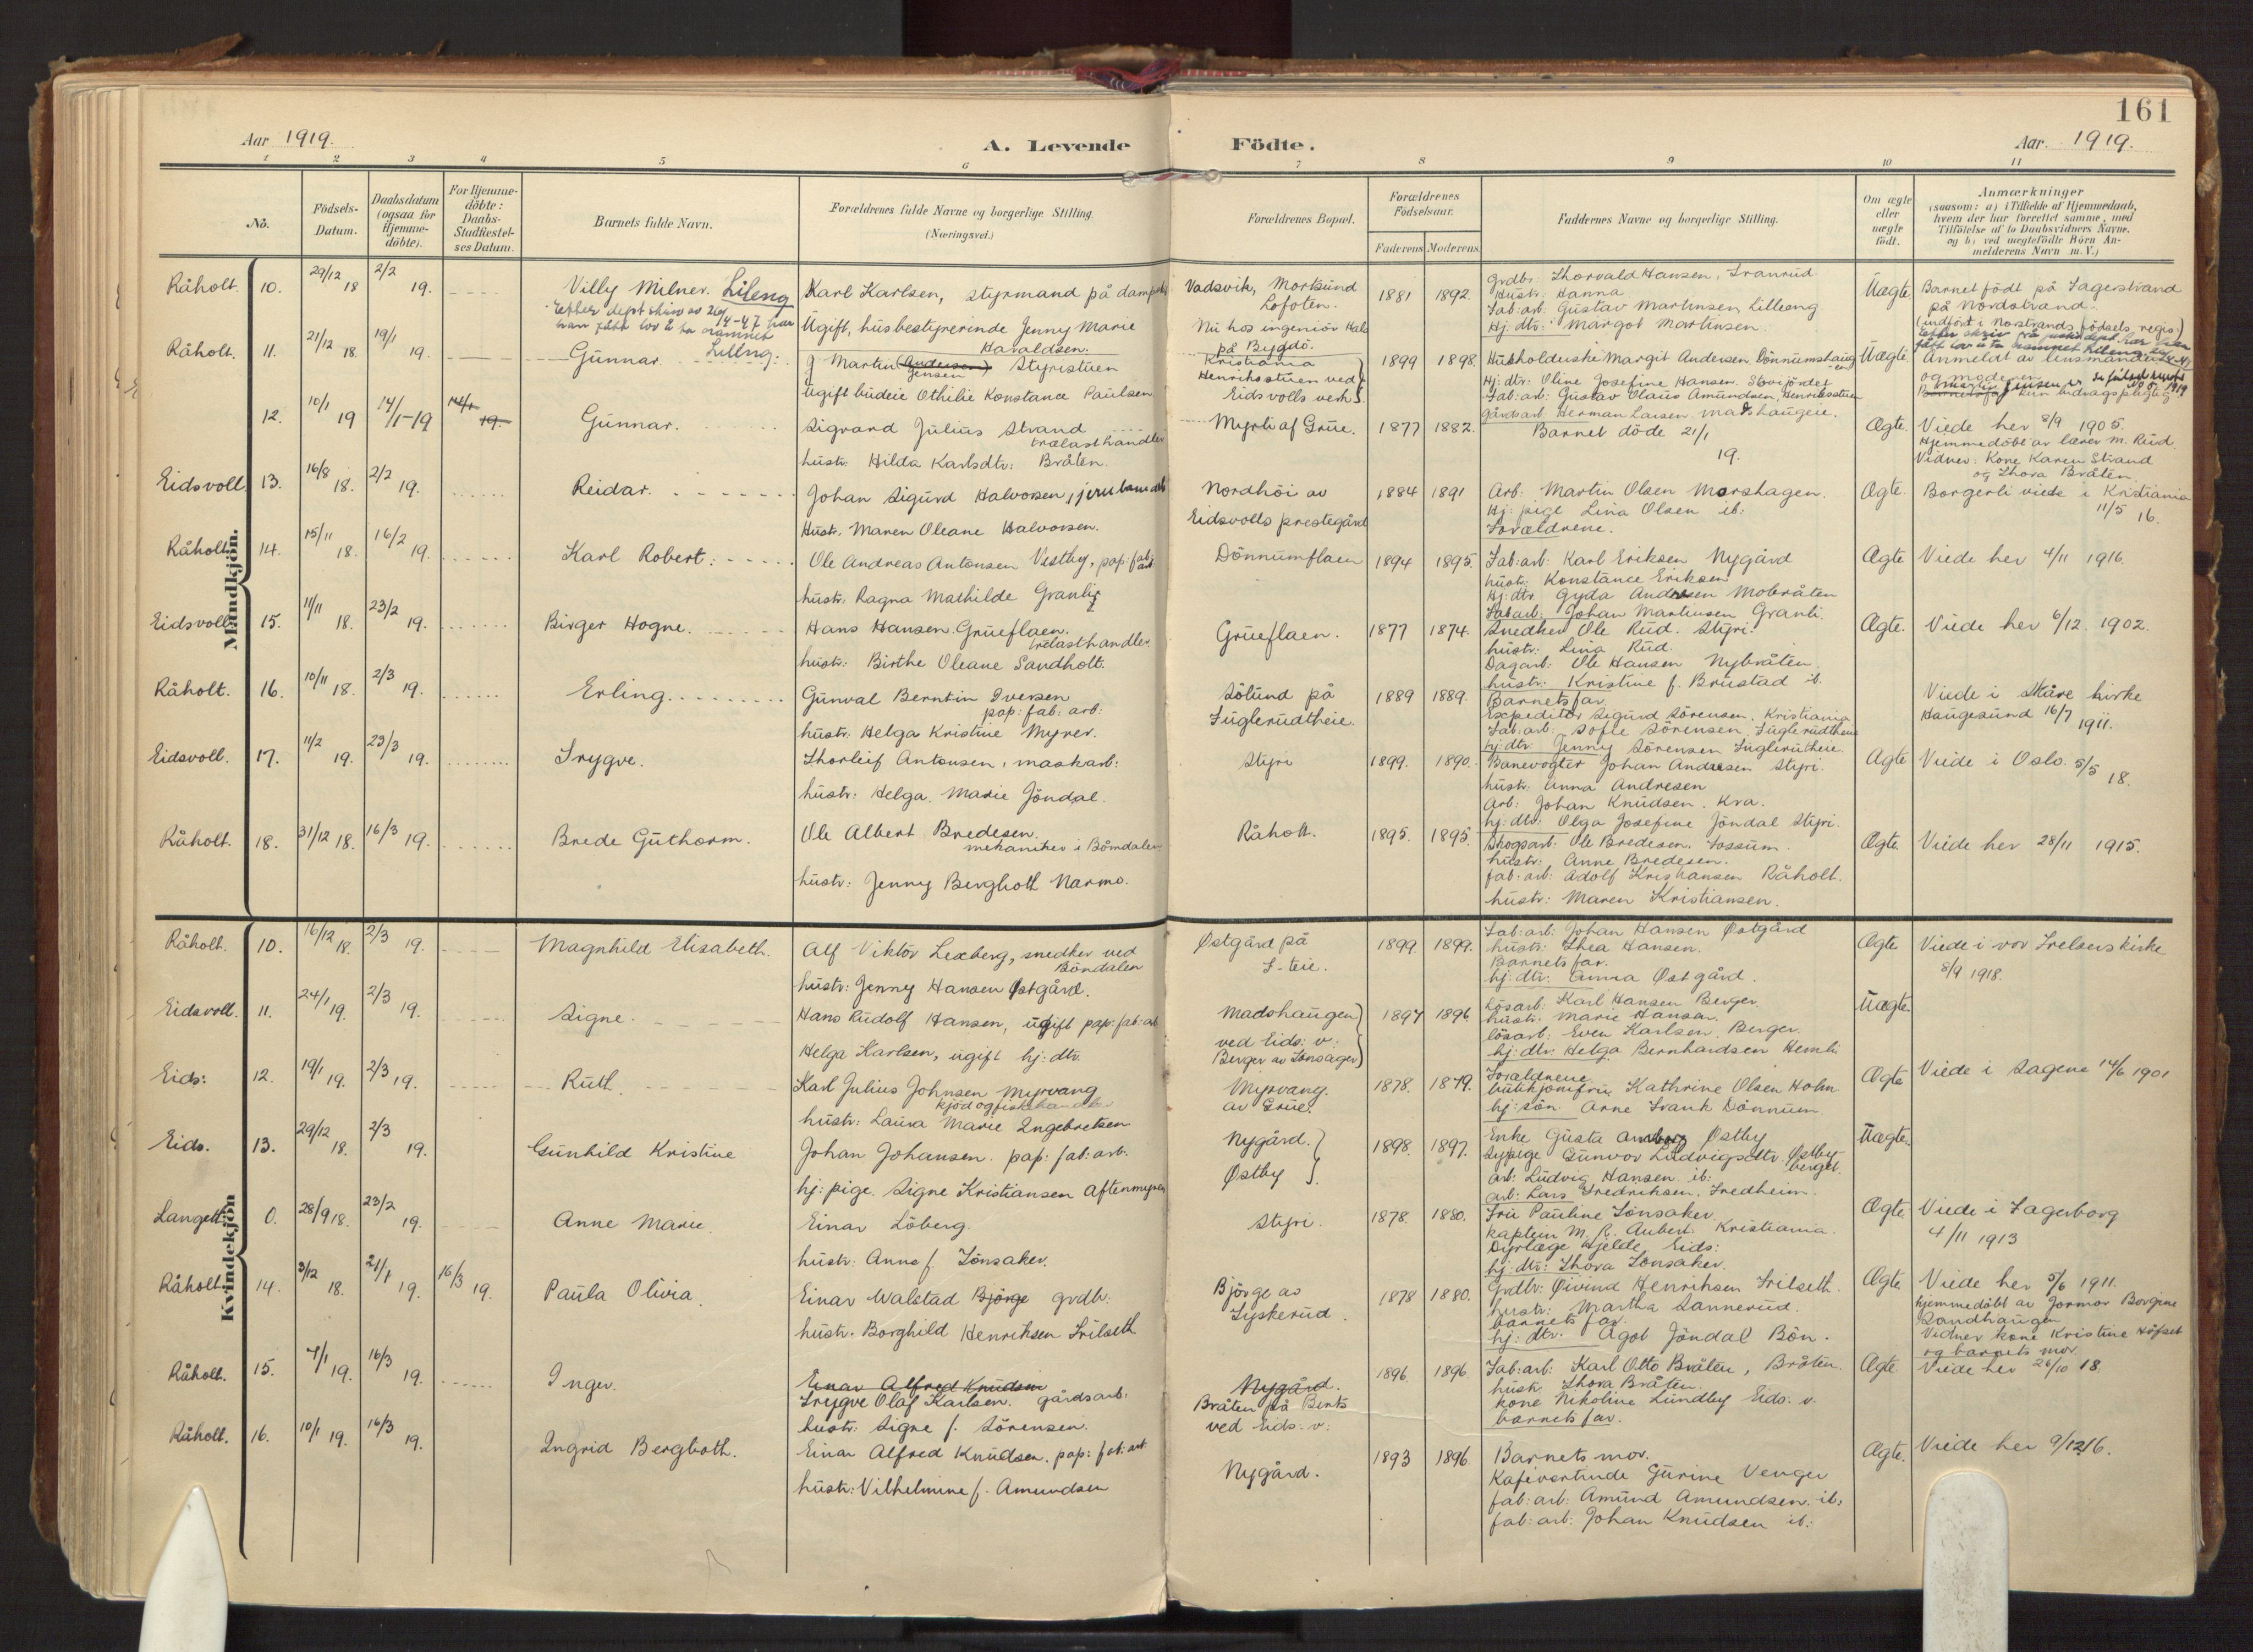 161
Aar 1919.
A. Levende
Födte.
Aar. 1919.
1 2 3 4 5 6 7 8 9 10 11
No.
Födsels-
Datum.
Daabsdatum
(ogsaa for
Hjemme-
döbte).
For Hjemme-
döbte:
Daabs-
Stadfæstel-
ses Datum.
Barnets fulde Navn.
Forældrenes fulde Navne og borgerlige Stilling
(Næringsvei.)
Forældrenes Bopæl.
Forældrenes
Födselsaar.
Faderens Moderens
Faddernes Navne og borgerlige Stilling.
Om ægte
eller
uægte
födt.
Anmærkninger
(saasom: a) i Tilfælde af Hjemmedaab,
hvem der har forrettet samme, med
Tilföielse af to Daabsvidners Navne,
og b) ved uægtefödte Börn An-
melderens Navn m. V.)
Mandkjön.
Råholt. 10. 29/12 18 2/2 19.
Villy Milner. Lileng
Karl Karlsen, styrmand på
Ugift, husbestyrerinde Jenny Marie
Haraldsen.
Vadsvik, Mortsund
Lofoten.
Nu hos ingeniör
på Bygdö.
1881 1892.
Grdbr: Thorvald Hansen, Tranrud
Hustr: Hanna
Fab: arb: Gustav Martinsen Lilleeng
Hj: dtr: Margot Martinsen.
Uægte.
Barnet født på Fagerstrand
på Nordstrand.
(indført i Norstrands födsels regis.)
Råholt. 11. 21/12 18. 19/1 19.
Gunnar Lileng.
g Martin (Andersen) Styristuen
Jensen
Ugift budeie Othilie Konstance Paulsen
Kristiania
Henriksstuen ved
Eidsvolls verk
1899 1898.
Husholderske Margit Andersen Dönnumshaugen
Hj: dtr: Oline Josefine Hansen.
Fab: arb: Gustav Olaus Amundsen, Henriksstuen
gårdsarb. Herman Larsen. Madshaugen.
Uægte
Anmeldt av lensmanden
og moderen
12. 10/1 19 14/1-19 14/1 19.
Gunnar.
Sigvard Julius Strand
trælasthandler
hustr: Hilda Karlsdtr: Bråten.
Myrli af Grue.
1877 1882.
Barnet döde 21/1
19.
Ægte.
Viede her 8/9 1905.
Hjemmedöbt av lærer M. Rud
Vidner: Kone Karen Strand
og Thora Bråten.
Eidsvoll. 13. 16/8 18. 2/2 19.
Reidar.
Johan Sigurd Halvorsen,
Hustr. Maren Oleane Halvorsen.
Nordhöi av
Eidsvolls prestegård
1884 1891
Arb: Martin Olsen Morshagen.
Hj: pige Lina Olsen ib:
Forældrene.
Ægte.
Borgerli viede i Kristiania
11/5 16.
Råholt 14. 15/11 18. 16/2 19.
Karl Robert:
Ole Andreas Antonsen Vestby, pap: fab: arb.
hustr: Ragna Mathilde Granli
Dönnumflaen
1894 1895.
Fab: arb: Karl Eriksen Nygård
hustr: Konstance Eriksen
Hj: dtr. Gyda Andresen Mobråten
Fab: arb: Johan Martinsen Granli.
Ægte
Viede her 4/11 1916.
Eidsvoll. 15. 11/11 18. 23/2 19.
Birger Hogne.
Hans Hansen Grueflaen.
trelasthandler
hustr: Birthe Oleane Sandholt.
Grueflaen.
1877 1874.
Snedker Ole Rud. Styri.
hustr: Lina Rud.
Dagarb: Ole Hansen Nybråten.
hustr: Kristine f. Brustad ib.
Ægte.
Viede her 6/12. 1902.
Råholt. 16. 10/11 18. 2/3 19.
Erling.
Gunval Berntin Iversen
pap: fab: arb:
hustr: Helga Kristine Myrer.
Sölund på
Fuglerudteie.
1889 1889.
Barnets far.
Expeditör Sigurd Sörensen. Kristiania
Fab: arb: Sofie Sörensen Fuglerudteie
hj: dtr: Jenny Sörensen Fuglerudteie.
Viede i Skåre kirke
Haugesund 16/7 1911.
Eidsvoll. 17. 11/2 19. 23/3 19.
Trygve.
Thorleif Antonsen, maskarb:
hustr: Helga Marie Jöndal.
Styri
1899. 1890.
Banevogter Johan Andresen Styri.
hustr: Anna Andresen
Arb: Johan Knudsen. Kra.
hj: dtr: Olga Josefine Jöndal Styri.
Ægte
Viede i Oslo. 5/5 18.
Råholt. 18. 31/12 18. 16/3 19.
Brede Guthorm.
Ole Albert Bredesen.
mekaniker i Böndalen
hustr: Jenny Berghott Narmo.
Råholt.
1895. 1895.
Skogsarb: Ole Bredesen. Fossum.
hustr: Anne Bredesen.
fab: arb: Adolf Kristiansen Råholt.
hustr: Maren Kristiansen.
Ægte
Viede her 28/11 1915.
Kvindekjön
Råholt. 10. 16/12 18. 2/3 19.
Magnhild Elisabeth.
Alf Viktor Lexberg, snedker ved
Böndalen
hustr: Jenny Hansen Østgård.
Østgård på
F-teie.
1899. 1899.
Fab: arb: Johan Hansen Østgård
hustr: Thea Hansen.
Barnets far.
hj: dtr: Anna Østgård.
Ægte
Viede i vor Frelsers kirke
8/9 1918.
Eidsvoll. 11. 24/1 19. 2/3 19.
Signe.
Hans Rudolf Hansen, ugift pap: fab: arb
Helga Karlsen, ugift hj: dtr.
Madshaugen
ved Eids: v:
Berger av Tönsager
1897 1896
Lösarb: Karl Hansen Berger.
hustr: Marie Hansen.
lösarb: Even Karlsen. Berger.
hj: dtr: Helga Bernhardsen Hemli
Uægte.
Eids: 12. 19/1 19. 2/3 19.
Ruth
Karl Julius Johnsen Myrvang
kjöd og fiskehandler
hustr: Laura Marie Engebretsen
Myrvang.
av Grue.
1878. 1879.
Forældrene
butikjomfru Kathrine Olsen Holm
hj: sön Arne Frank Dönnum.
Ægte
Viede i Sagene 14/6 1901
Eids. 13. 29/12 18. 2/3 19.
Gunhild Kristine
Johan Johansen. pap: fab: arb.
hj: pige. Signe Kristiansen Aftenmyren
Nygård.
Østby
1898. 1897.
Enke Gusta Østby
Sypige Gunvor Ludvigsdtr. Østby-
berget.
Arb: Ludvig Hansen ib:
arb: Lars Fredriksen, Fredheim.
Uægte.
Langett. 0. 28/9 18. 23/2 19.
Anne Marie
Einar Löberg.
hustr: Anna f. Tönsaker.
Styri.
1878. 1880.
Fru Pauline Tönsaker.
kaptein M. R. Aubert. Kristiania.
Dyrlæge Hjelde Eids:
hj: dtr: Thora Tönsaker.
Ægte.
Viede i Fagerborg
4/11 1913
Råholt. 14. 3/12 18. 21/1 19. 16/3 19.
Paula Olivia
Einar Walstad Bjørge grdbr:
hustr. Borghild Henriksen Frilseth
Bjørge av
Lyskerud.
1878 1880.
Grdbr: Øivind Henriksen Frilseth.
hustr: Martha Sannerud.
barnets far.
hj: dtr. Ågot Jöndal Bön.
Ægte
Viede her 5/6 1911.
hjemmedöbt av Jormor Borgine
Sandhaugen
Vidner kone Kristine Höfset
og barnets mor.
Råholt. 15. 4/1 19. 16/3 19.
Inger.
Einar Alfred Knudsen
Trygve Olaf Karlsen. gårdsarb:
hustr: Signe f. Sörensen.
Nygård.
Bråten på Bints
ved Eids: v:
1896. 1896.
Fab: arb: Karl Otto Bråten, Bråten.
hustr. Thora Bråten.
kone Nikoline Lundby Eids: v.
barnets far.
Ægte
Viede her 26/10 18
Råholt. 16. 10/1 19. 16/3 19.
Ingrid Bergljoth.
Einar Alfred Knudsen. pap: fab: arb.
hustr: Vilhelmine f. Amundsen
Nygård.
1893 1896
Barnets mor.
Kafevertinde Gurine Venger
fab: arb: Amund Amundsen. ib:
fab: arb: Johan Knudsen ib:
Ægte.
Viede her 9/12 16.